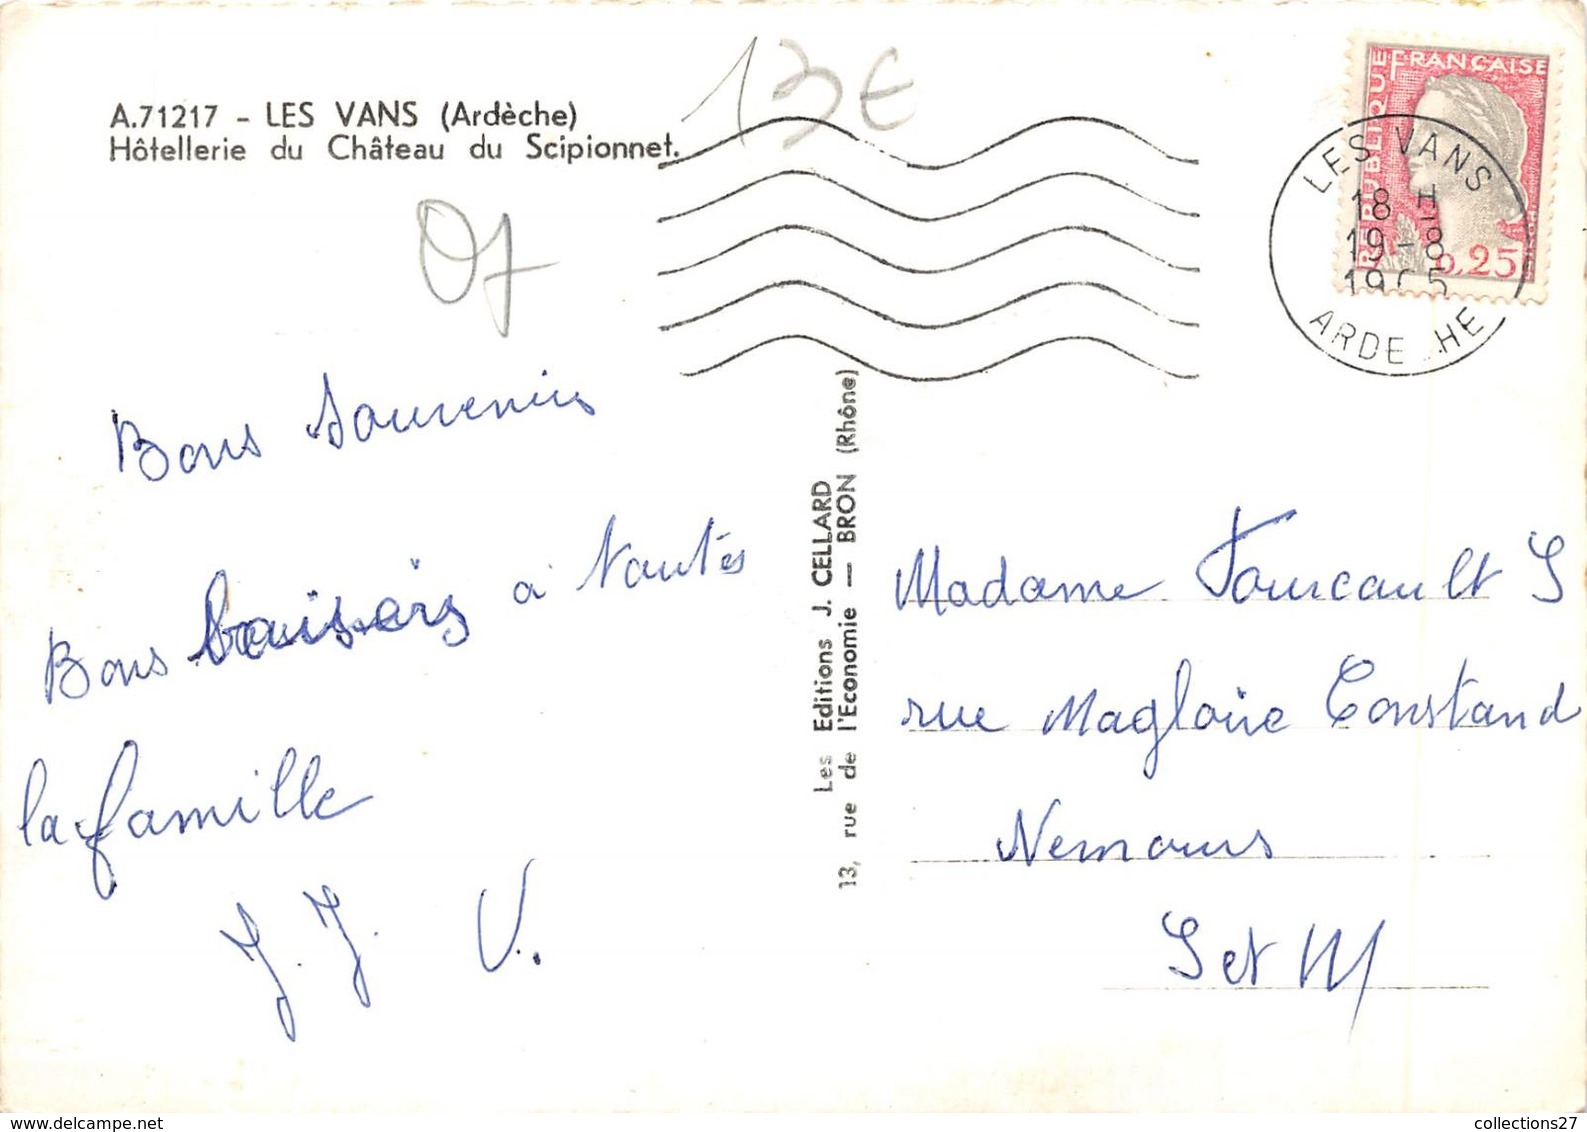 A.71217 - LES VANS (Ardèche)
Hôtellerie du Château du Scipionnet.
13€
07
RÉPUBLIQUE FRANÇAISE
0,25
LES VANS
18 H
19-8
19 5
ARDE HE
Bons souvenirs
Bons baisers à toutes
la famille
J. J. V.
Les Editions J. CELLARD
13, rue de l'Economie — BRON (Rhône)
Madame Foucault S
rue Magloire Constand
Nemours
S et M
collections27